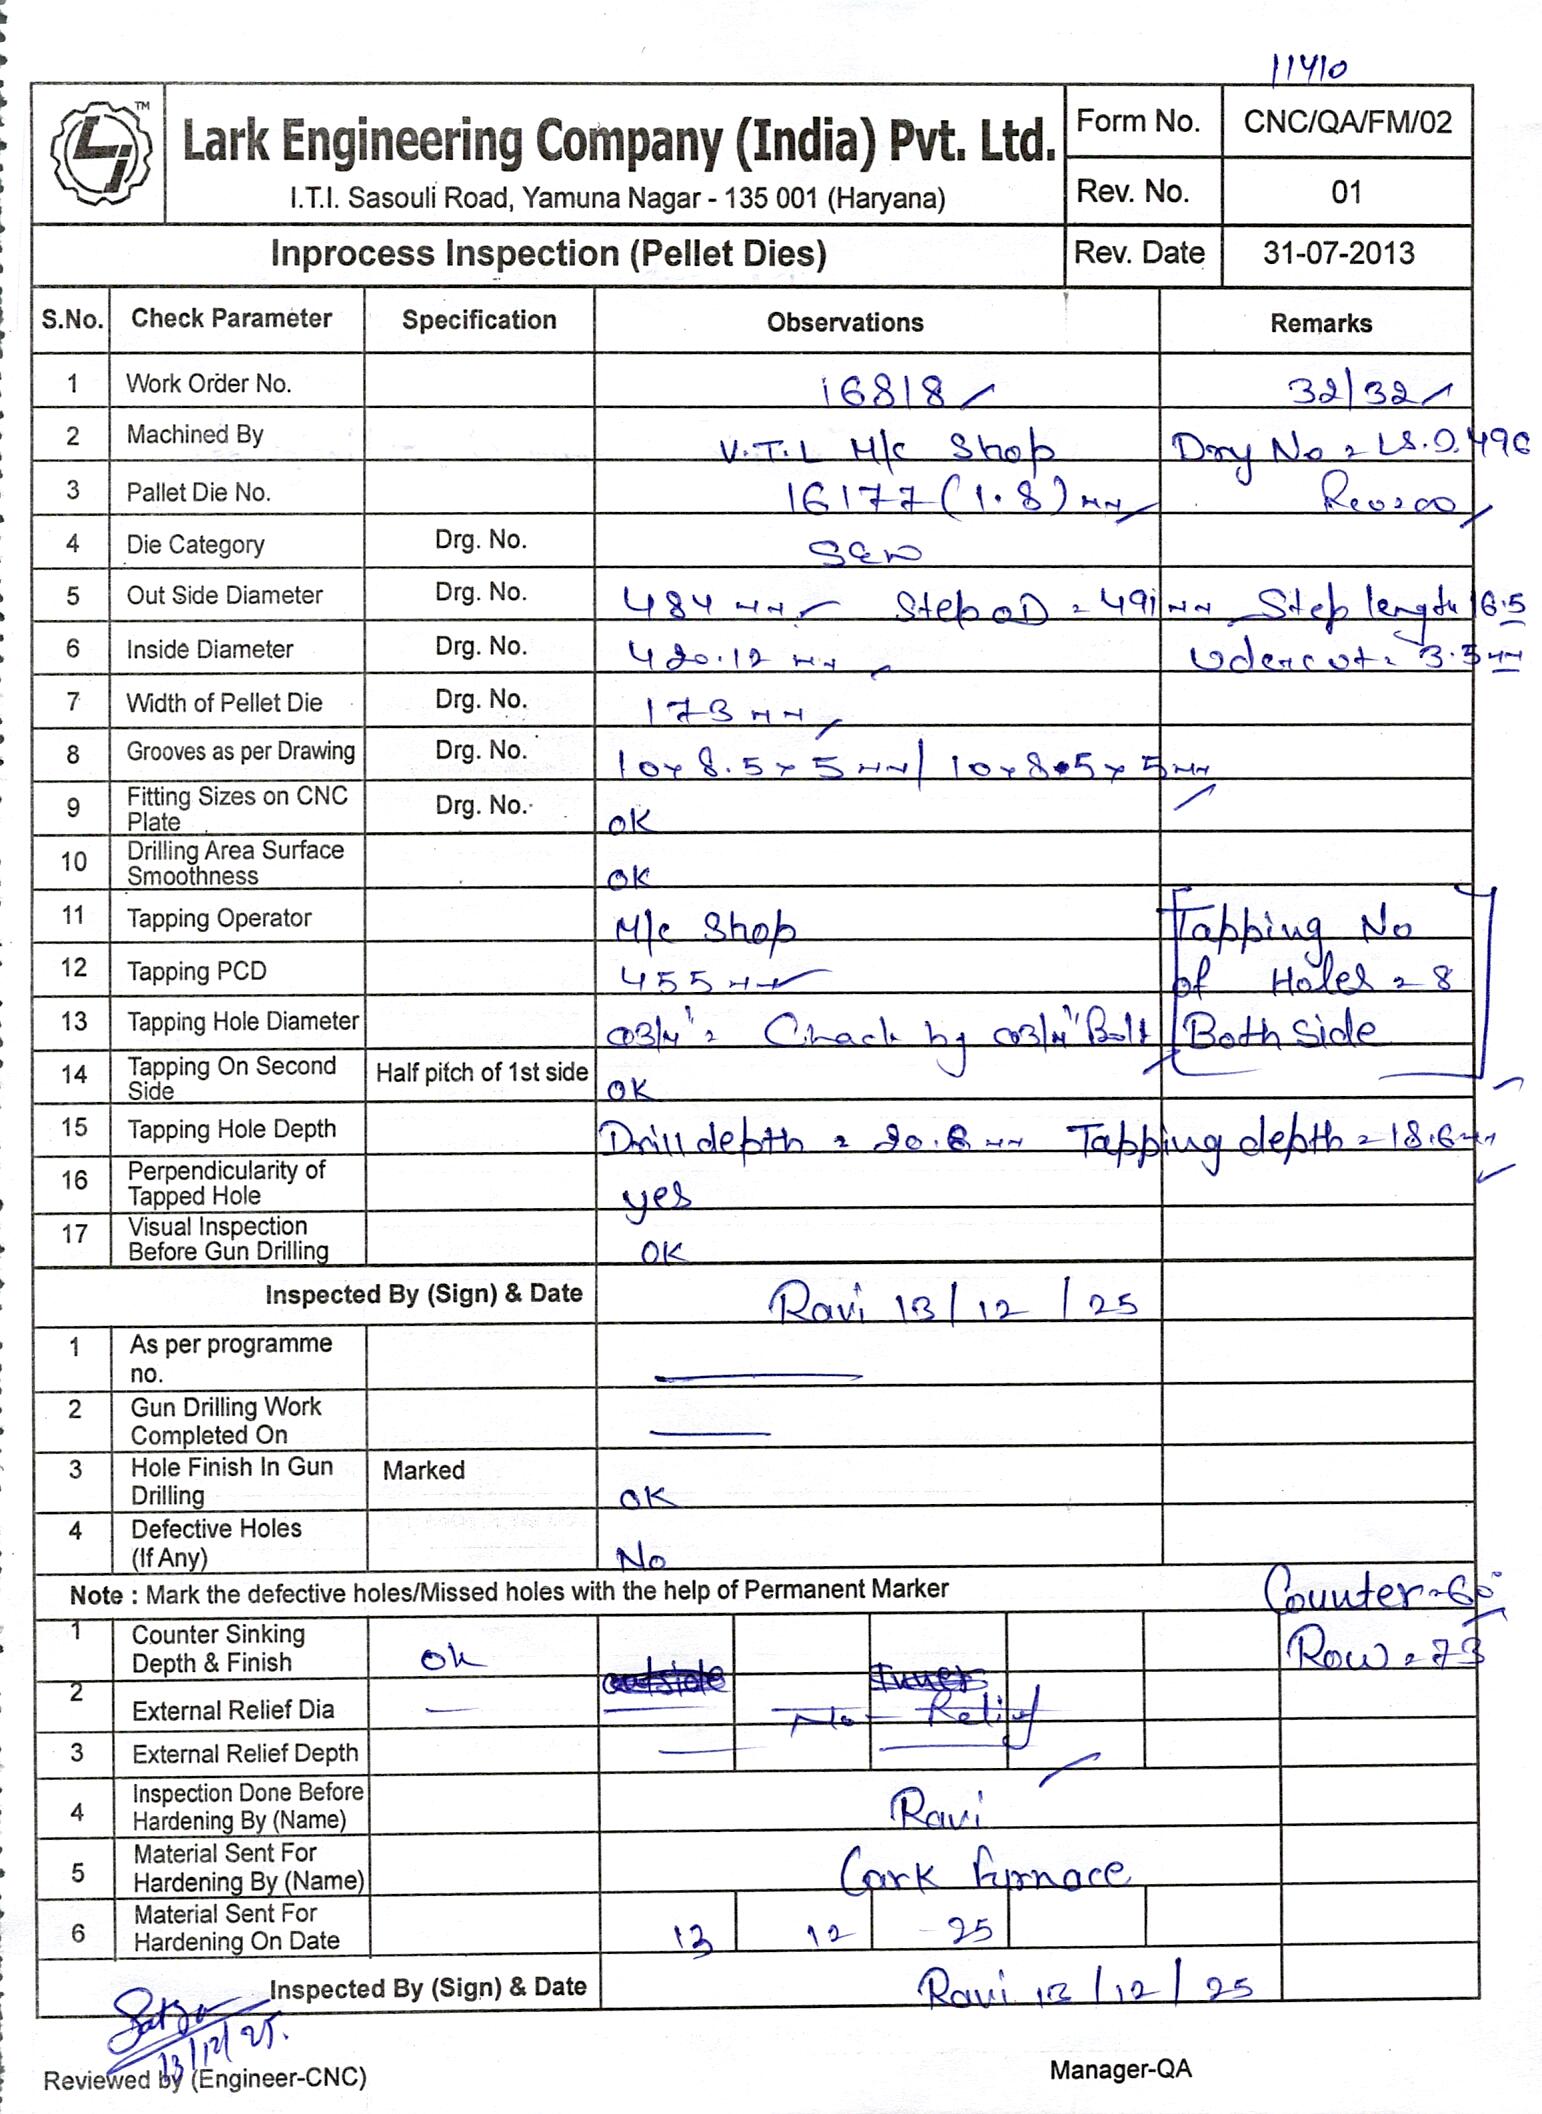 11410
Lark Engineering Company (India) Pvt. Ltd.
I.T.I. Sasouli Road, Yamuna Nagar - 135 001 (Haryana)
Form No. CNC/QA/FM/02
Rev. No. 01
Inprocess Inspection (Pellet Dies) Rev. Date 31-07-2013
S.No. Check Parameter Specification Observations Remarks
1 Work Order No. 16818 32/32
2 Machined By V.T.L M/c Shop Drg No = LS.D.496
3 Pallet Die No. 16177 (1.8) mm Rev=00
4 Die Category Drg. No.
5 Out Side Diameter Drg. No. 484 mm Step OD = 491 mm Step length 16.5
6 Inside Diameter Drg. No. 420.12 mm Udercut = 3.5 mm
7 Width of Pellet Die Drg. No. 173 mm
8 Grooves as per Drawing Drg. No. 10x8.5x5mm/10x8.5x5mm
9 Fitting Sizes on CNC Plate Drg. No. OK
10 Drilling Area Surface Smoothness OK
11 Tapping Operator M/c Shop Tapping No
12 Tapping PCD 455 mm of Holes = 8
13 Tapping Hole Diameter 3/4" = Chack by 3/4" Bolt Both Side
14 Tapping On Second Side Half pitch of 1st side OK
15 Tapping Hole Depth Drill depth = 20.6 mm Tapping depth = 18.6 mm
16 Perpendicularity of Tapped Hole yes
17 Visual Inspection Before Gun Drilling OK
Inspected By (Sign) & Date Ravi 13/12/25
1 As per programme no.
2 Gun Drilling Work Completed On
3 Hole Finish In Gun Drilling Marked OK
4 Defective Holes (If Any) No
Note : Mark the defective holes/Missed holes with the help of Permanent Marker Counter = 60°
1 Counter Sinking Depth & Finish Ok Row = 73
2 External Relief Dia No Relief
3 External Relief Depth
4 Inspection Done Before Hardening By (Name) Ravi
5 Material Sent For Hardening By (Name) Lark Furnace
6 Material Sent For Hardening On Date 13 12 25
Inspected By (Sign) & Date Ravi 13/12/25
13/12/25.
Reviewed by (Engineer-CNC) Manager-QA